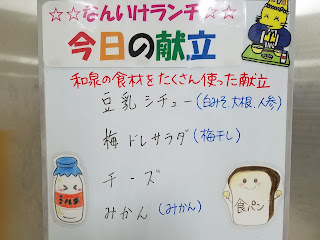 ☆☆なんいけランチ☆☆
今日の献立
和泉の食材をたくさん使った献立
豆乳シチュー(白みそ、大根、人参)
梅ドレサラダ(梅干し)
チーズ
みかん(みかん)
ミルク
食パン